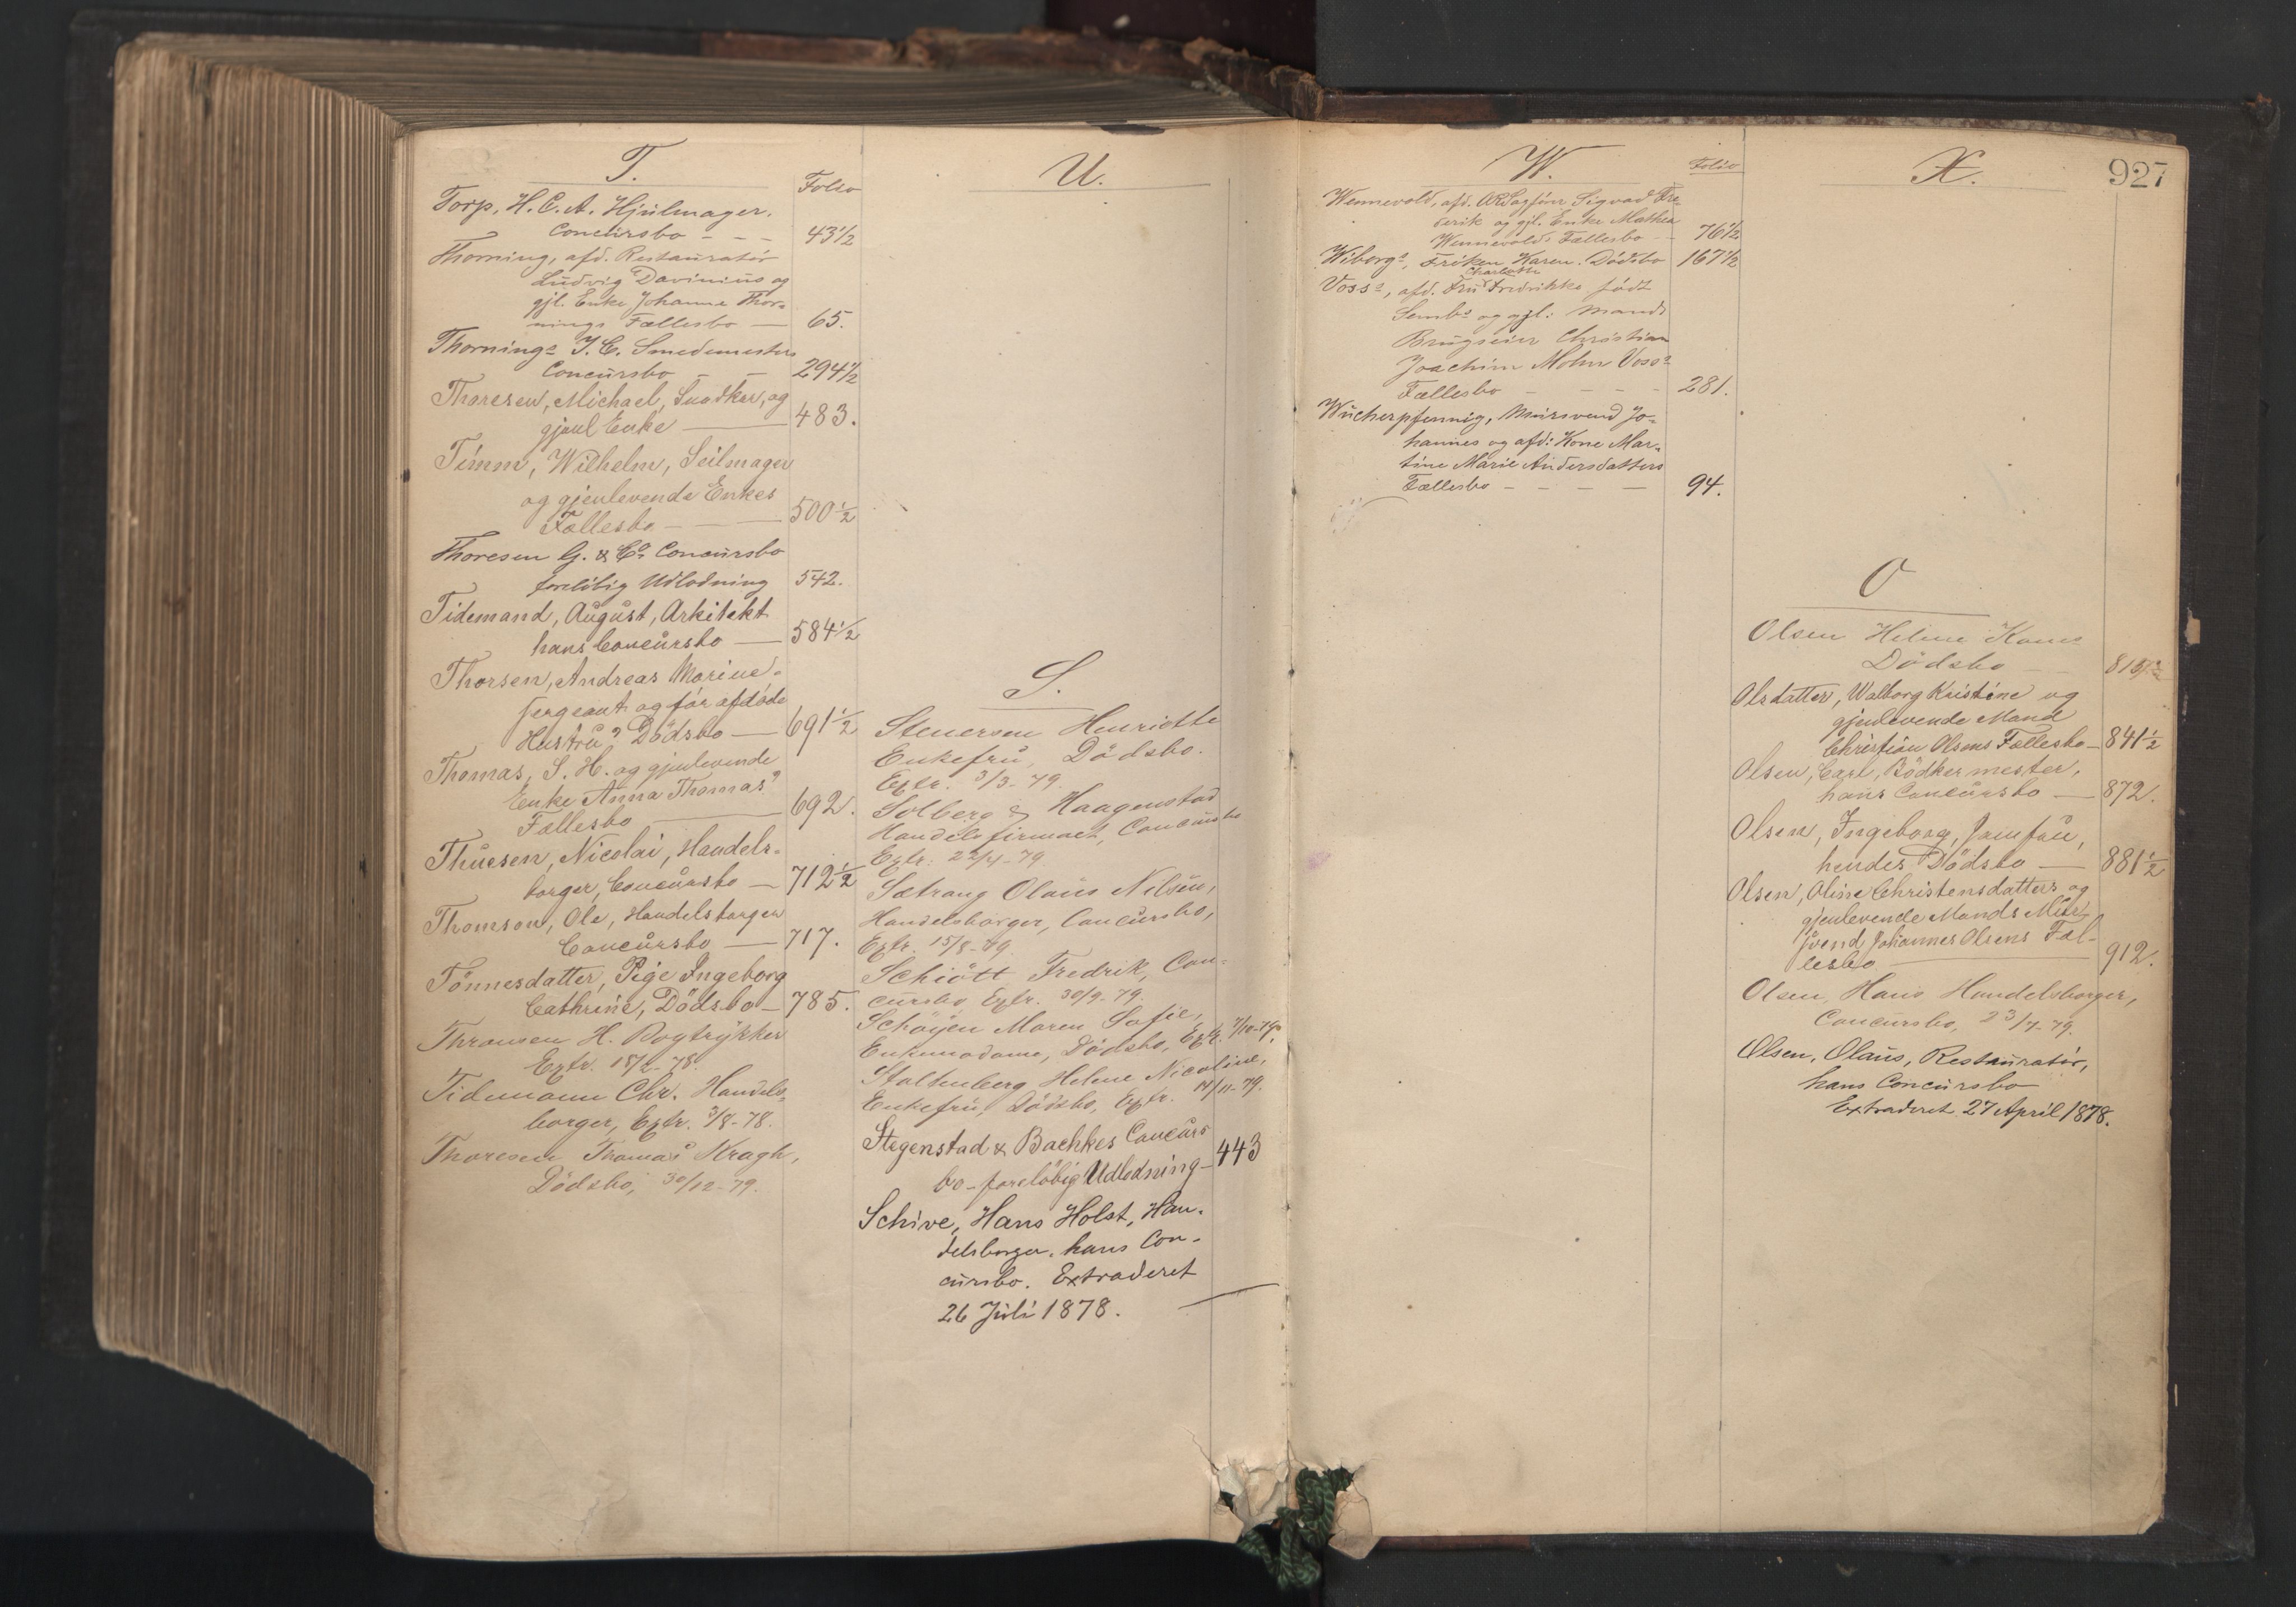 T.
Folio
Torp, H. C. A. Hjulmager.
Concursbo - - - 43 1/2
Thorning, afd. Restauratör
Ludvig Davinius og
gjl. Enke Johanne Thor-
nings Fællesbo — 65.
Thornings J. C. Smedemesters
Concursbo - - 294 1/2
Thoresen, Michael, Snedker, og
gjenl Enke — 483.
Timm, Wilhelm, Seilmager
og gjenlevende Enkes
Fællesbo — 500 1/2
Thoresen G. & Co Concursbo
foreløbig Udlodning 542.
Tidemand, August, Arkitekt
hans Concursbo — 584 1/2
Thorsen, Andreas Marine-
sergeant og før afdøde
Hustrus Dødsbo — 691 1/2
Thomas, S. H. og gjenlevende
Enke Anna Thomas's
Fællesbo — 692.
Thuesen, Nicolai, Handels-
borger, Concursbo — 712 1/2
Thomson, Ole, Handelsborger
Concursbo — 717.
Tönnesdatter, Pige Ingeborg
Cathrine, Dödsbo — 785.
Thronsen H. Bogtrykker
Extr. 15/2-78.
Tidemann Chr. Handels-
borger, Extr. 3/8-78.
Thoresen Thomas Kragh,
Dödsbo, 30/12-79.
U.
S.
Stenersen Henriette
Enkefru, Dödsbo.
Extr. 3/3-79.
Solberg & Haagenstad
Handelsfirmaet, Concursbo
Extr: 22/4-79
Sætrang Olaus Nilsen,
Handelsborger, Concursbo,
Extr. 15/8-79.
Schiött Fredrik, Con-
cursbo, Extr. 30/9-79.
Schöyen Maren Sofie,
Enkemadame, Dödsbo, Extr. 7/10-79.
Stoltenberg Helene Nicoline,
Enkefru, Dödsbo, Extr. 14/11-79.
Stegenstad & Bachkes Concurs
bo - foreløbig Udlodning — 443
Schive, Hans Holst, Han-
delsborger. hans Con-
cursbo. Extraderet
26 Juli 1878.
W.
Folio
Wennevold, afd. Sigvad Fre-
derik og gjl. Enke Mathea
Wennevolds Fællesbo — 76 1/2
Wiborgs, Fröken Karen. Dödsbo 167 1/2
Charlotte
Voss's, afd. Fru Fredrikke født
Sembs og gjl: Mands
Brugseier Christian
Joachim Mohn Voss's
Fællesbo - - - - 281.
Wücherpfennig, Mursvend Jo-
hannes og afd: Kone Mar-
tine Marie Andersdatters
Fællesbo - - - — 94.
X.
927
O
Olsen Helene Kones
Dödsbo —
Olsdatter, Walborg Kristine og
gjenlevende Mand
Christian Olsens Fællesbo — 841 1/2
Olsen, Carl, Bödkermester,
hans Concursbo — 872.
Olsen, Ingeborg, Jomfru,
hendes Dödsbo — 881 1/2
Olsen, Oline Christensdatters og
gjenlevende Mands Mur-
svend Johannes Olsens Fæl-
lesbo — 912.
Olsen, Hans Handelsborger,
Concursbo, 23/7-79.
Olsen, Olaus, Restauratör,
hans Concursbo
Extraderet 27 April 1878.